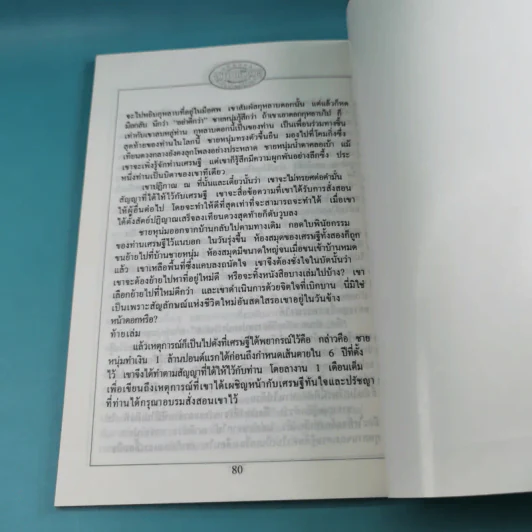 จะไปหยิบกุหลาบที่อยู่ในมือศพ เขาสัมผัสกุหลาบดอกนั้น แต่แล้วก็หด
มือกลับ นึกว่า "อย่าดีกว่า" ชายหนุ่มรู้สึกว่า ถ้าเขาเอาดอกกุหลาบไป ก็
เท่ากับเขาลบหลู่ท่าน กุหลาบดอกนี้เป็นของท่าน เป็นเพื่อนร่วมทางชิ้น
สุดท้ายของท่านในโลกนี้ ชายหนุ่มทรงตัวขึ้นยืน มองไปที่โคมกิ่งซึ่ง
เทียนดวงกลางยังคงลุกโพลงอย่างประหลาด ชายหนุ่มน้ำตาคลอเบ้า แม้
เขาจะเพิ่งรู้จักท่านเศรษฐี แต่เขาก็รู้สึกมีความผูกพันอย่างลึกซึ้ง ประ
หนึ่งท่านเป็นบิดาของเขาทีเดียว
เขาปฏิญาณ ณ ที่นั้นและเดี๋ยวนั้นว่า เขาจะไม่ทรยศต่อคำมั่น
สัญญาที่ได้ให้ไว้กับเศรษฐี เขาจะสื่อข้อความที่เขาได้รับการสั่งสอน
ให้ผู้อื่นต่อไป โดยจะทำให้ดีที่สุดเท่าที่จะสามารถจะทำได้ เมื่อเขา
ได้ตั้งสัตย์ปฏิญาณเสร็จลงเทียนดวงสุดท้ายก็ดับวูบลง
ชายหนุ่มออกจากบ้านกลับไปตามทางเดิม กอดใบพินัยกรรม
ของท่านเศรษฐีไว้แนบอก ในวันรุ่งขึ้น ห้องสมุดของเศรษฐีทั้งสองก็ถูก
ขนย้ายไปที่บ้านชายหนุ่ม ห้องสมุดมีขนาดใหญ่จนเมื่อขนเข้าบ้านหมด
แล้ว เขาเหลือพื้นที่ซึ่งแคบลงถนัดใจ เขาจึงต้องชั่งใจในบัดนั้นว่า
เขาจะต้องย้ายไปหาที่อยู่ใหม่ดี หรือจะทิ้งหนังสือบางเล่มไปบ้าง? เขา
เลือกย้ายไปที่ใหม่ดีกว่า และเขาดำเนินการด้วยจิตใจที่เบิกบาน นี่มิใช่
เป็นเพราะสัญลักษณ์แห่งชีวิตใหม่อันสดใสรอเขาอยู่ในวันข้าง
หน้าดอกหรือ?
ท้ายเล่ม
แล้วเหตุการณ์ก็เป็นไปดังที่เศรษฐีได้พยากรณ์ไว้คือ กล่าวคือ ชาย
หนุ่มทำเงิน 1 ล้านปอนด์แรกได้ก่อนถึงกำหนดเส้นตายใน 6 ปีที่ตั้ง
ไว้ เขาจึงได้ทำตามสัญญาที่ได้ให้ไว้กับท่าน โดยลางาน 1 เดือนเต็ม
เพื่อเขียนถึงเหตุการณ์ที่เขาได้เผชิญหน้ากับเศรษฐีทันใจและปรัชญา
ที่ท่านได้กรุณาอบรมสั่งสอนเขาไว้
80